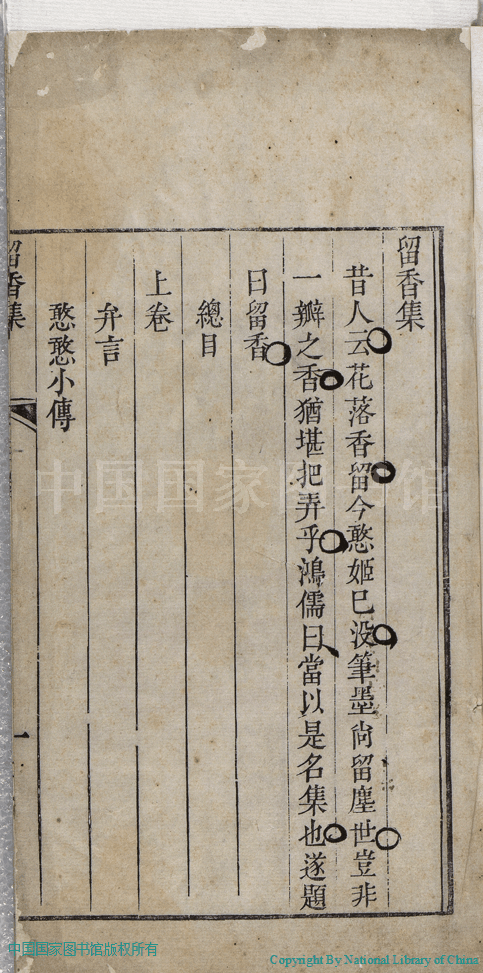 留香集
昔人云花落香留今憨姬巳没筆墨尚留塵世豈非
一瓣之香猶堪把弄乎鴻儒曰當以是名集也遂題
曰留香
總目
上卷
弁言
憨憨小傳
留香集
一
中国国家图书馆
中国国家图书馆版权所有
Copyright By National Library of China